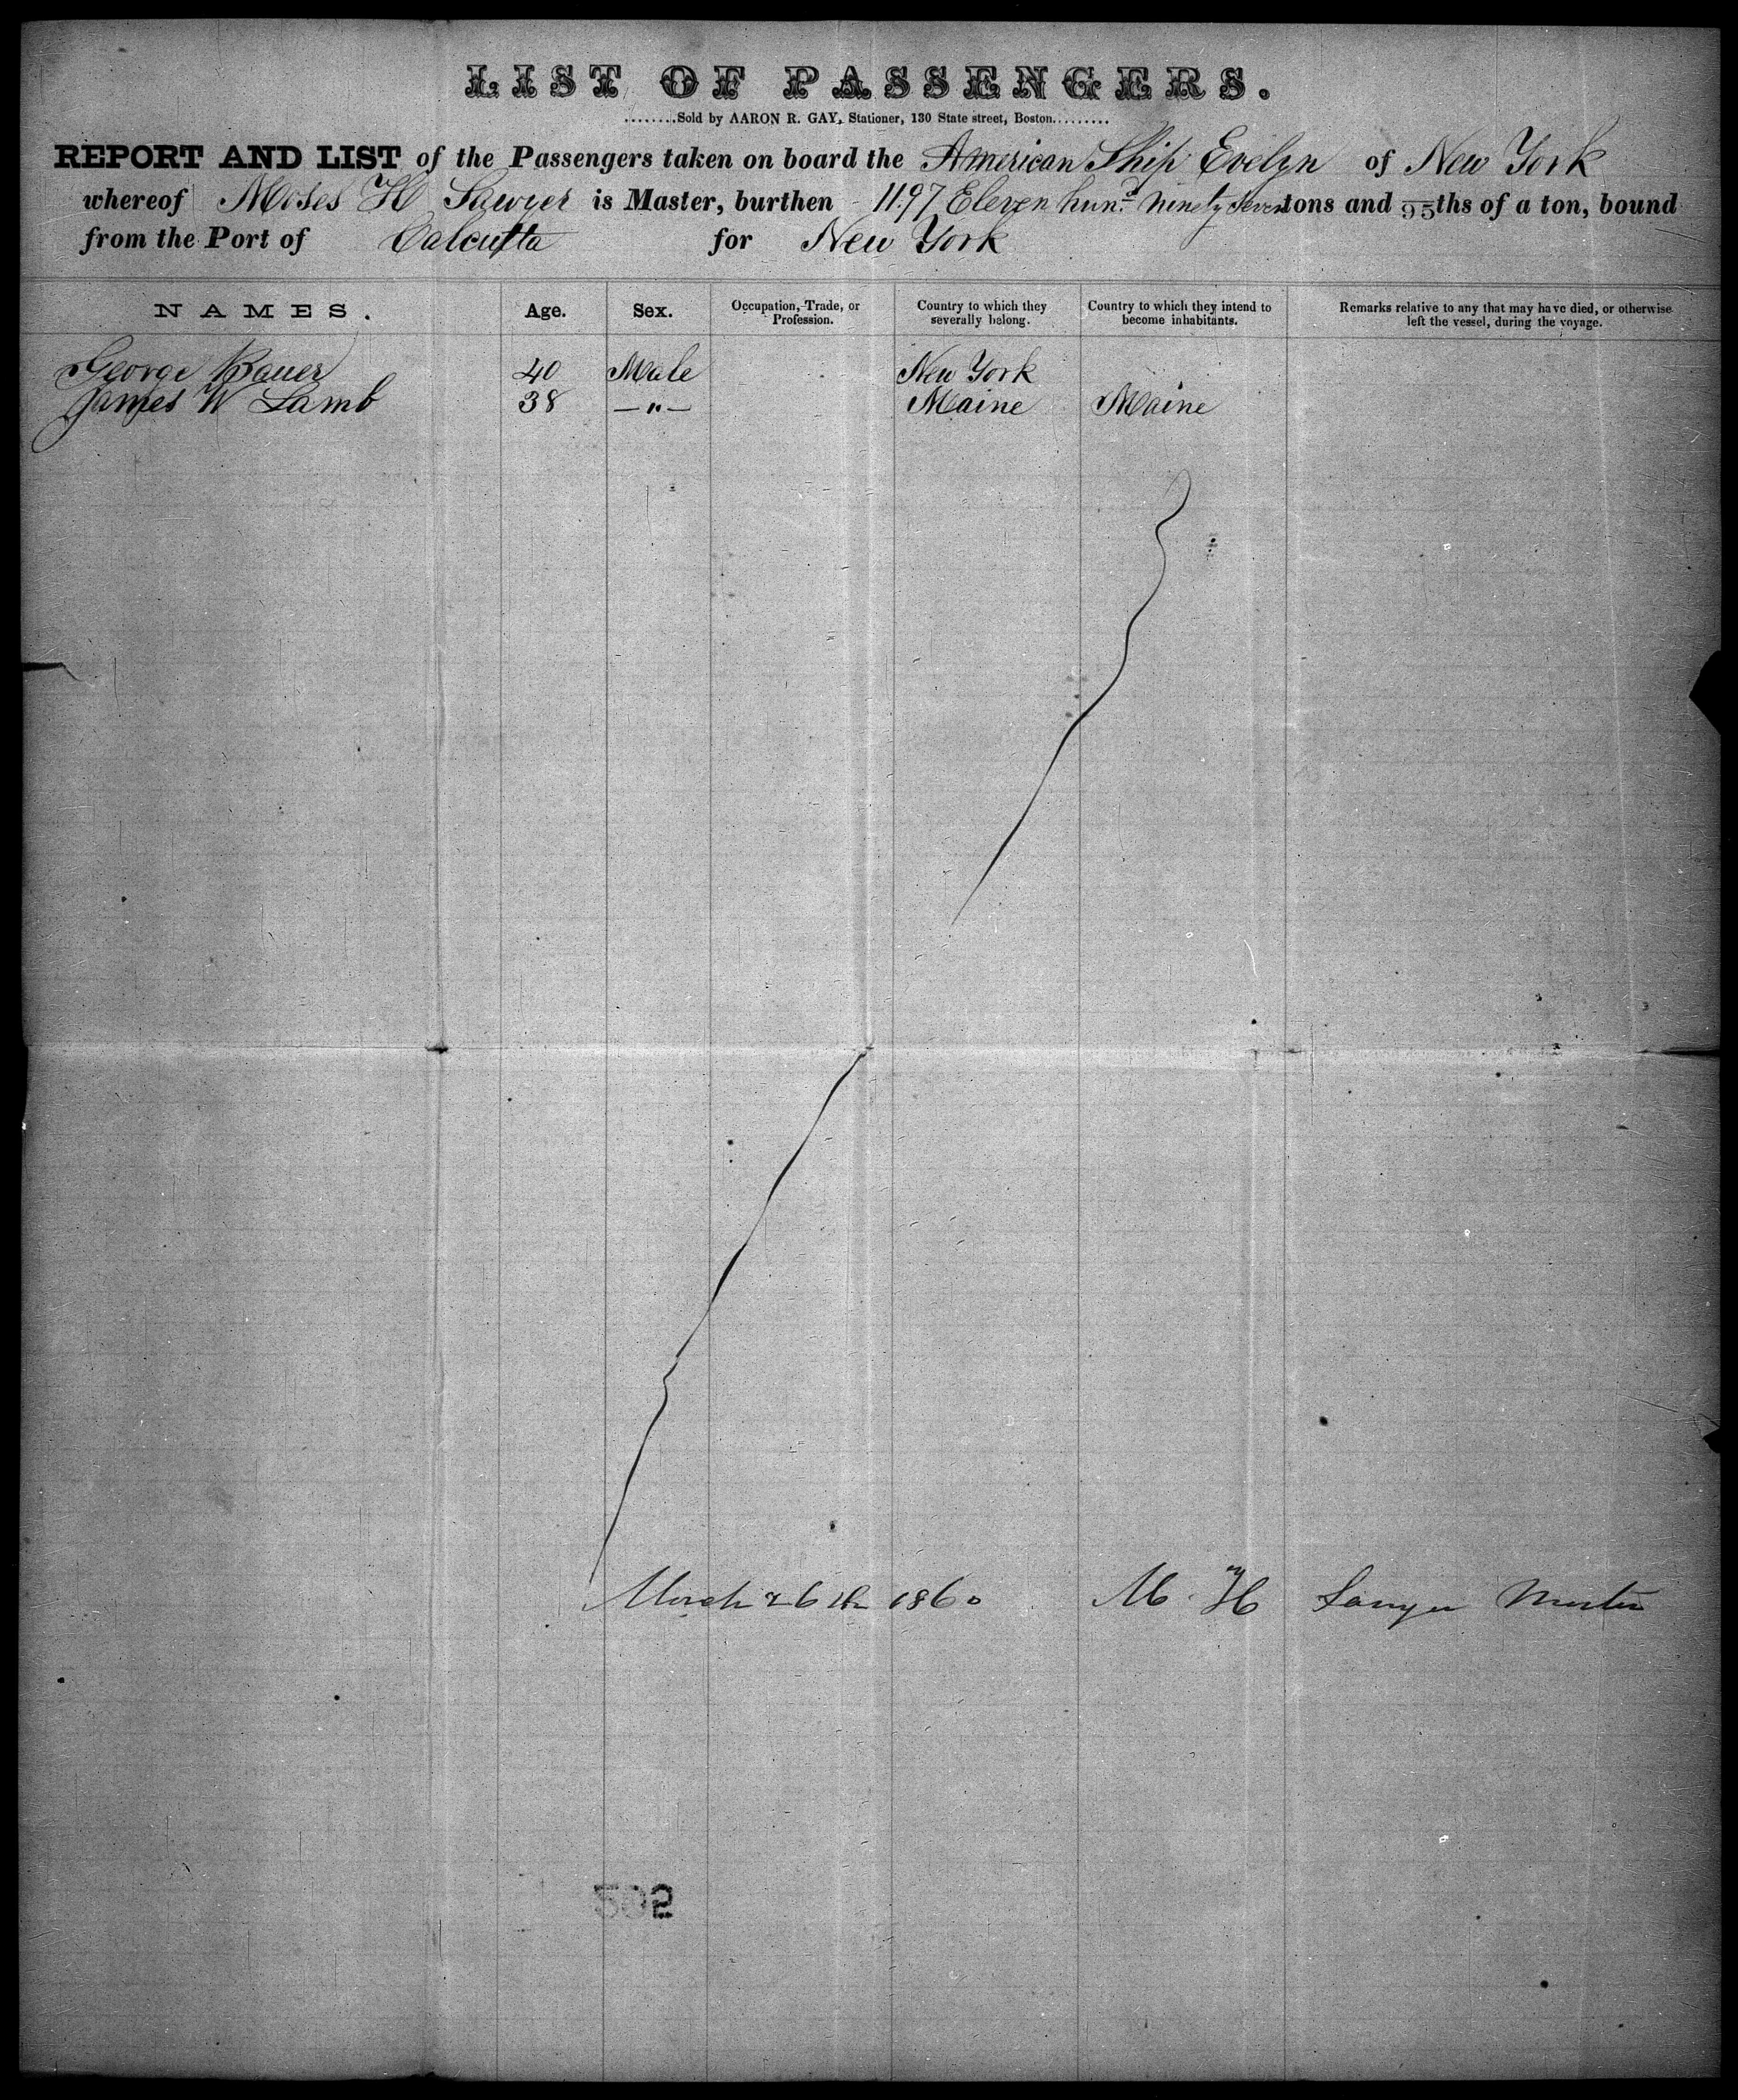 LIST OF PASSENGERS.
........Sold by AARON R. GAY, Stationer, 130 State street, Boston.........
REPORT AND LIST of the Passengers taken on board the American Ship Evelyn of New York
whereof Moses H Sawyer is Master, burthen 1197 Eleven hund ninety seven tons and 95ths of a ton, bound
from the Port of Calcutta for New York
NAMES. Age. Sex. Occupation, Trade, or Profession. Country to which they severally belong. Country to which they intend to become inhabitants. Remarks relative to any that may have died, or otherwise left the vessel, during the voyage.
George Bauer 40 Male New York
James W Lamb 38 —"— Maine Maine
March 26th 1860 M. H Sawyer Master